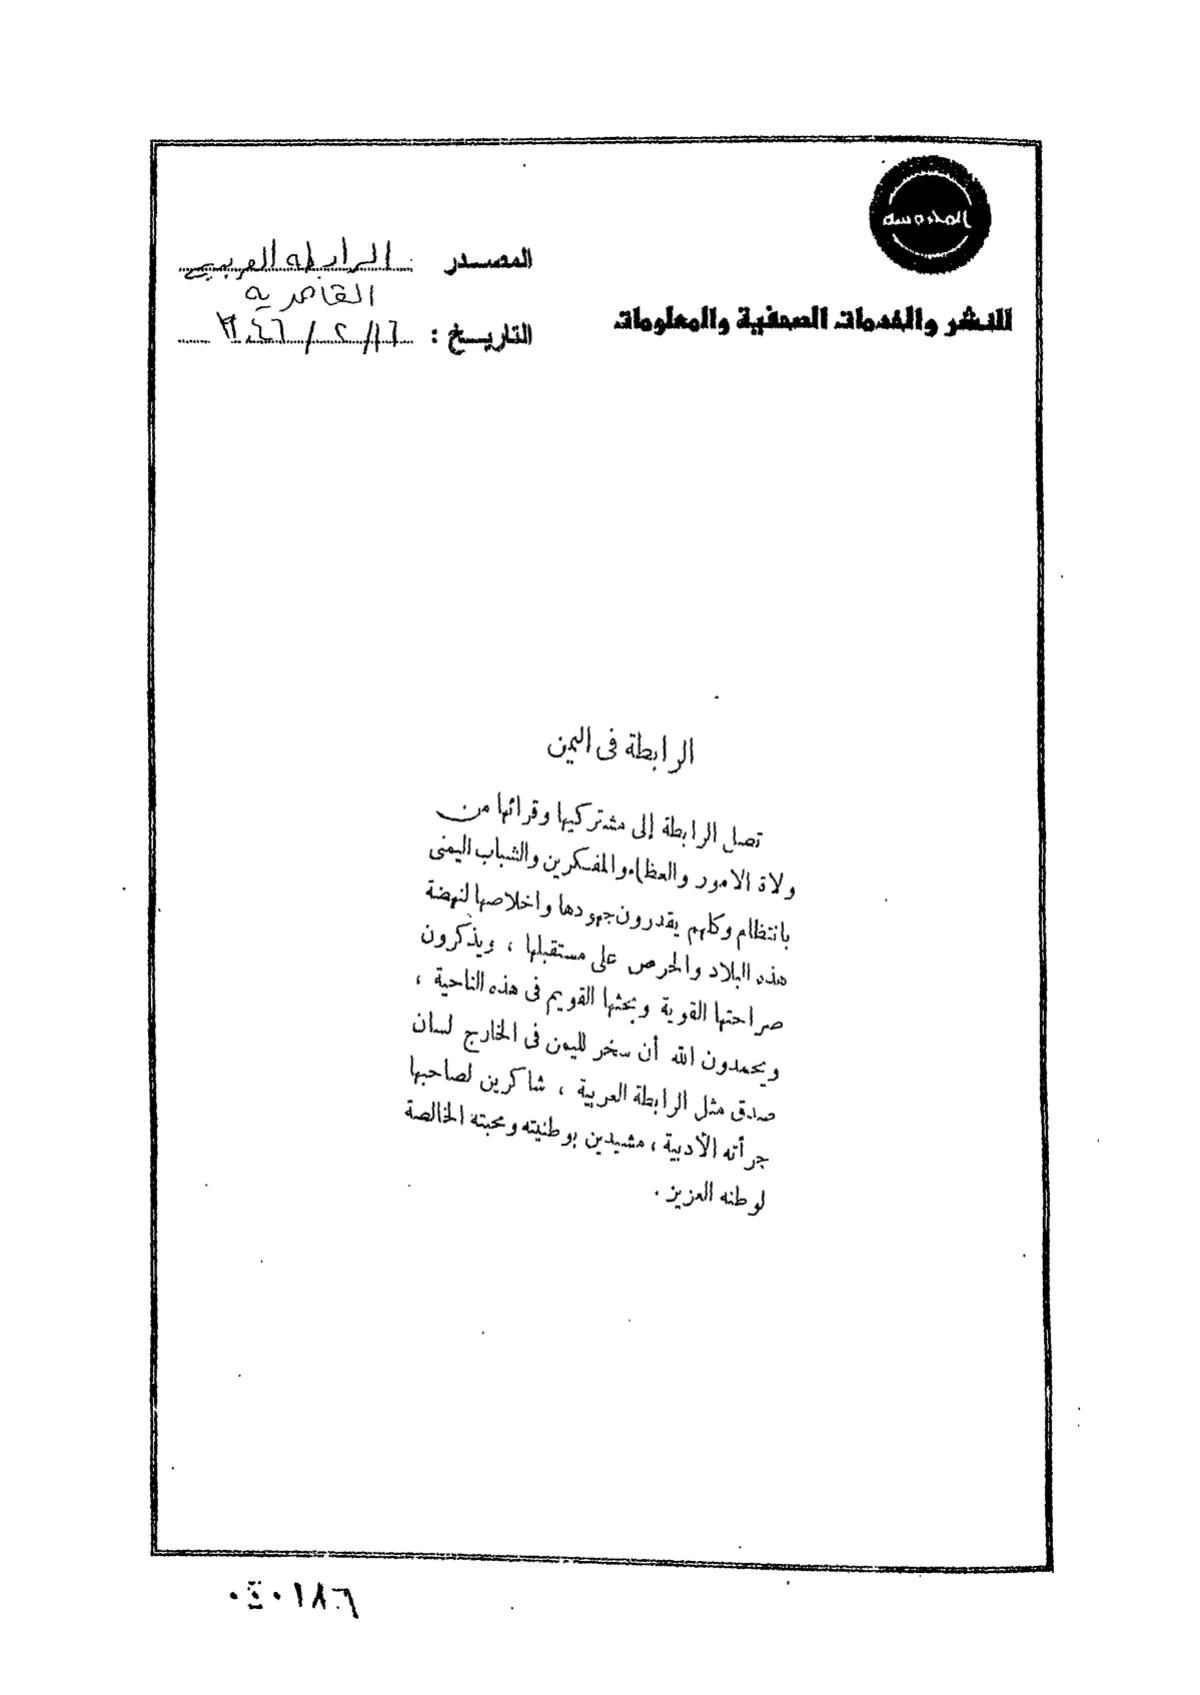 المحروسة
للنشر والخدمات الصحفية والمعلومات
المصدر الرابطه العربيه
القاهريه
التاريخ : ١٦/ ٢ /
الرابطة فى اليمن
تصل الرابطة إلى مشتركيها وقرائها من
ولاة الامور والعظماء والمفكرين والشباب اليمنى
بانتظام وكلهم يقدرون جهودها واخلاصها لنهضة
هذه البلاد والحرص على مستقبلها ، ويذكرون
صراحتها القوية وبحثها القويم فى هذه الناحية ،
ويحمدون الله أن سخر لليمن فى الخارج لسان
صدق مثل الرابطة العربية ، شاكرين لصاحبها
جرأته الأدبية ، مشيدين بوطنيته ومحبته الخالصة
لوطنه العزيز .